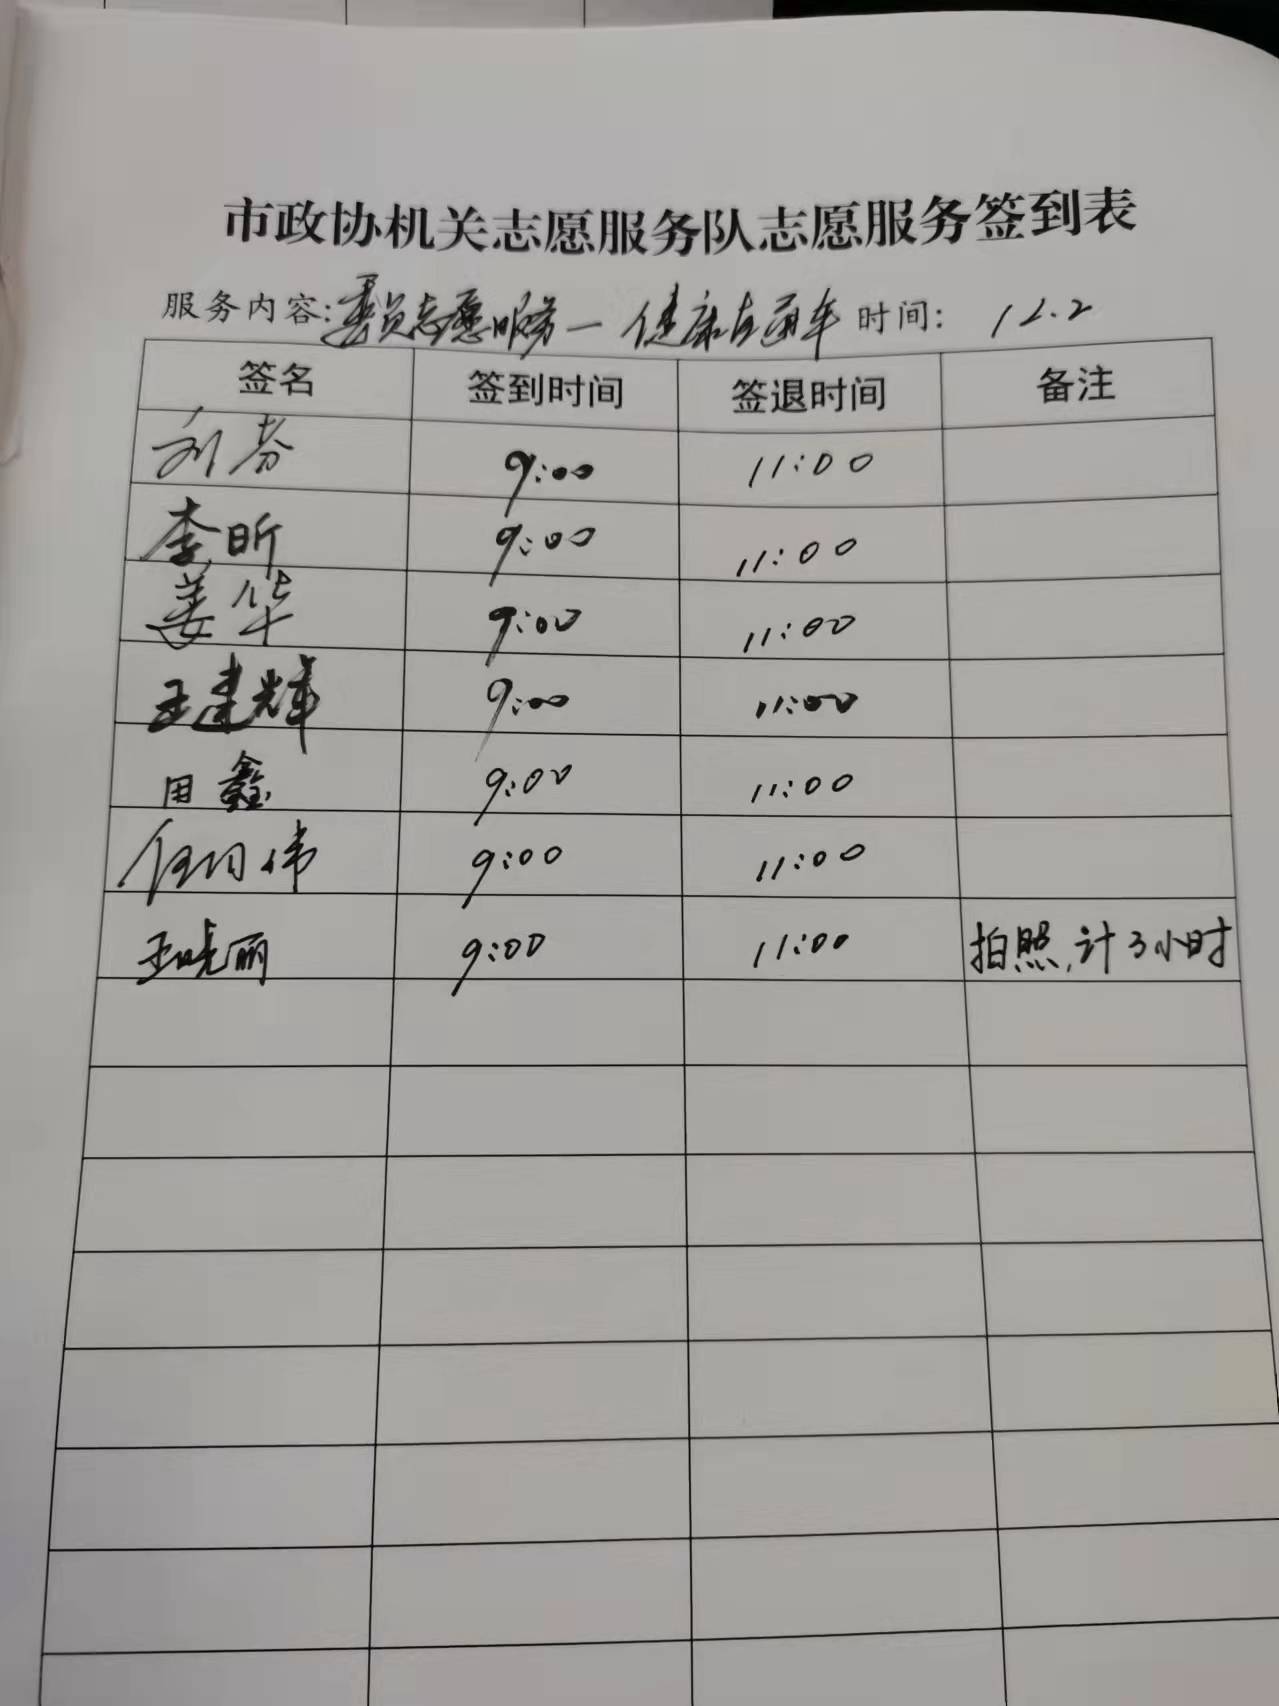 市政协机关志愿服务队志愿服务签到表
服务内容:委员志愿服务一健康直通车 时间: 12.2
签名 签到时间 签退时间 备注
刘芬 9:00 11:00
李昕 9:00 11:00
姜华 9:00 11:00
王建辉 9:00 11:00
田鑫 9:00 11:00
任 伟 9:00 11:00
王晓丽 9:00 11:00 拍照,计3小时